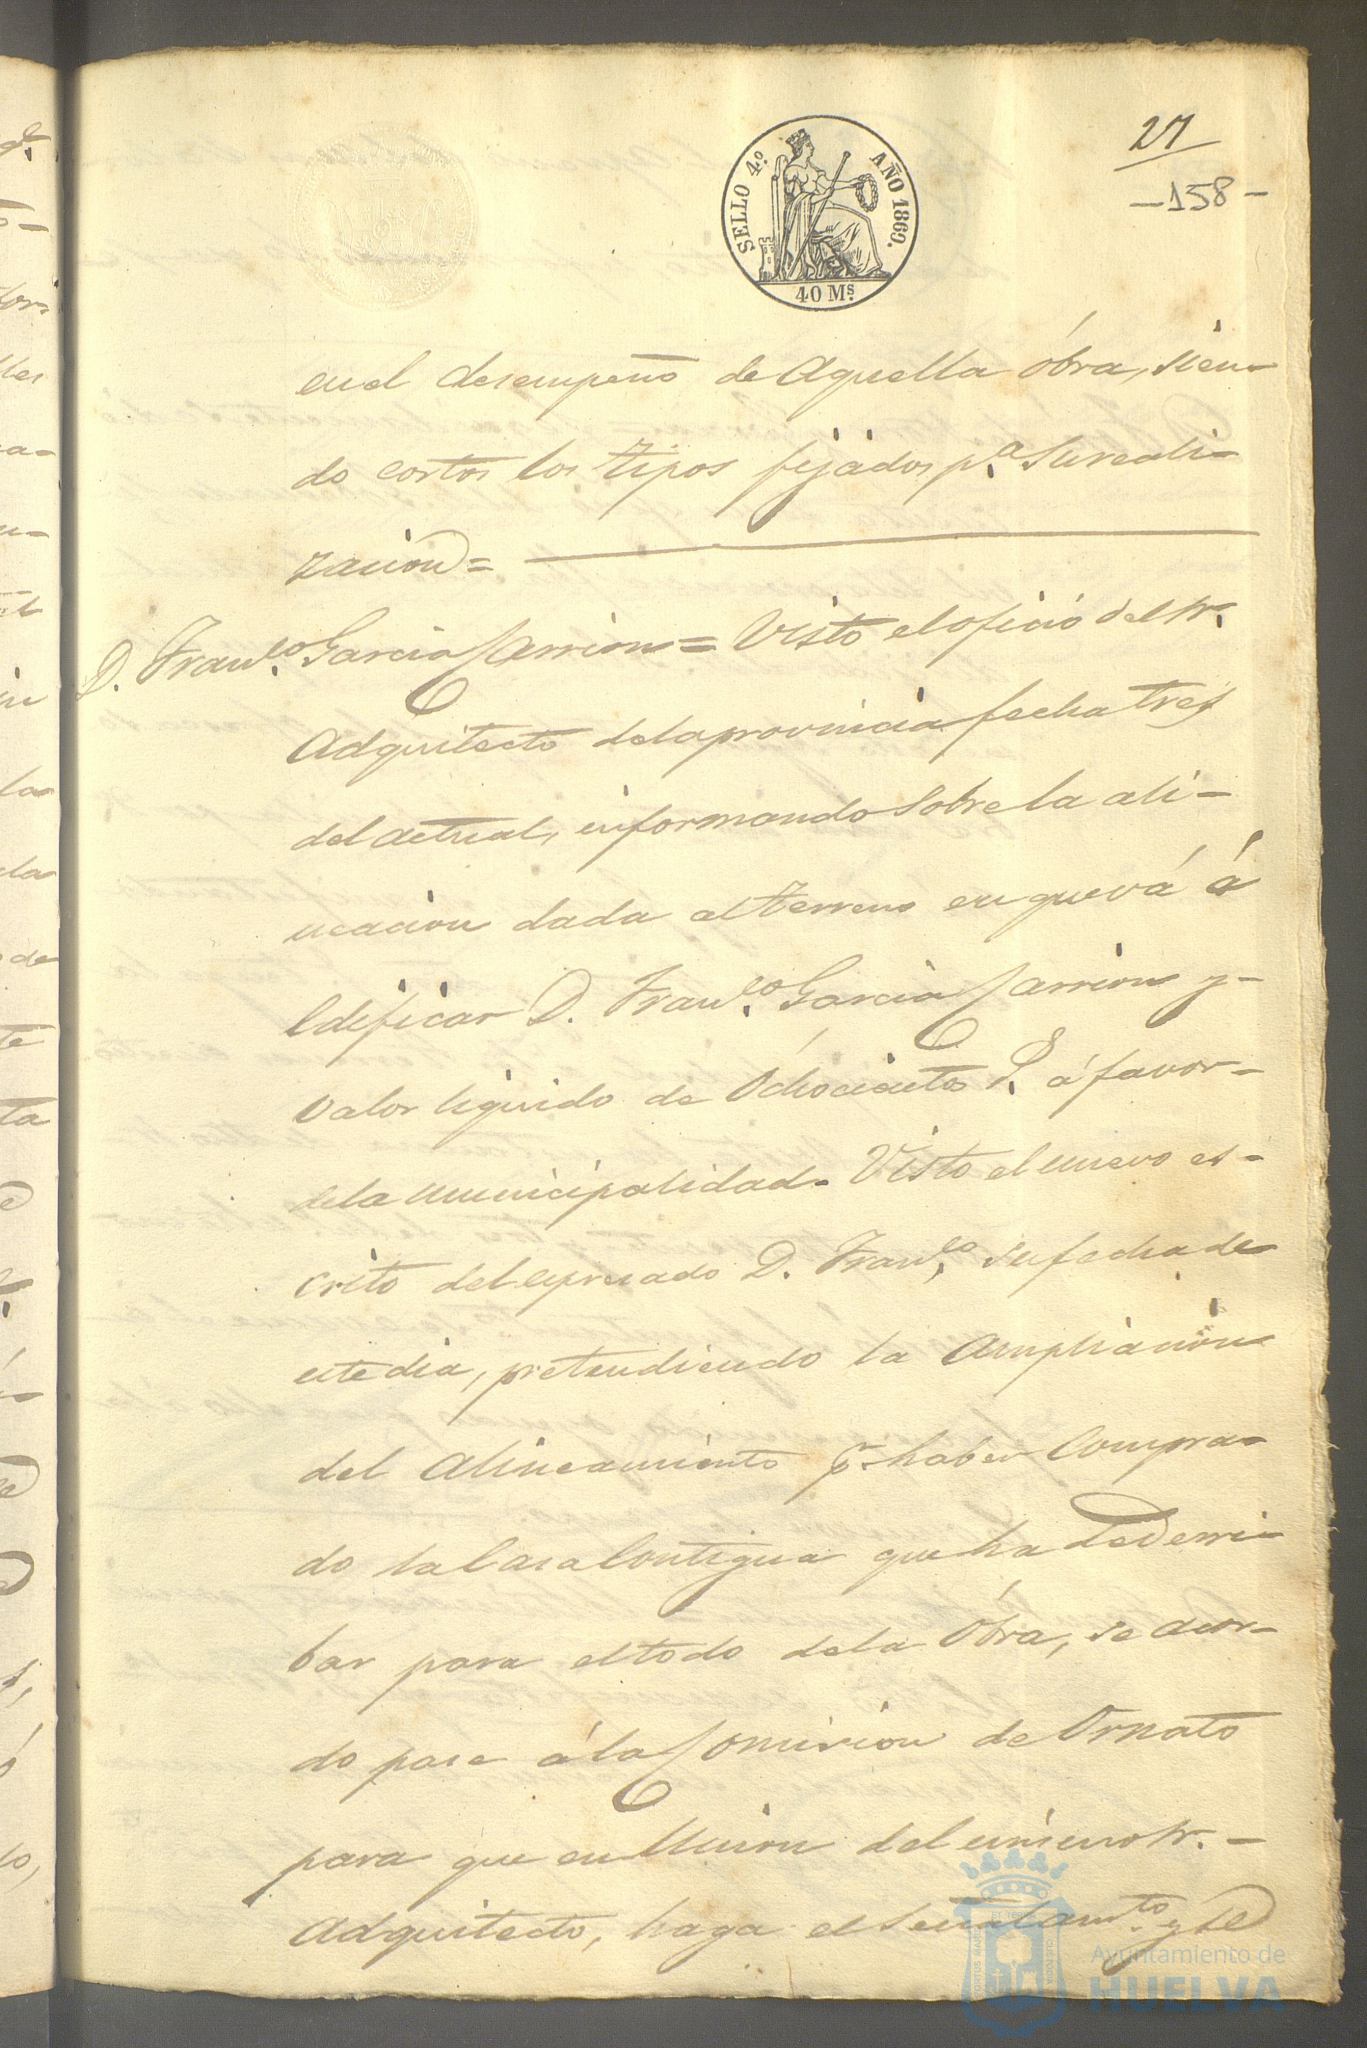 27
-158-
SELLO 4.º AÑO 1869.
40 Ms.
en el desempeño de aquella óbra, sien-
do cortos los tipos fijados p.ª su reali-
zacion=
D. Fran.co Garcia Carrion= Visto el oficio del Sr.
Adquitecto de la provincia fecha tres
del actual, informando sobre la ali-
neacion dada al terreno en que vá á
edificar D. Fran.co Garcia Carrion y-
valor liquido de Ochocientos á favor-
de la municipalidad. Visto el nuevo es-
crito del espresado D. Fran.co su fecha de
este dia, pretendiendo la ampliacion
del alineamiento pr. haber compra-
do la Casa Contigua que ha de derri-
bar para el todo de la Óbra, se acor-
do pase á la Comision de Ornato
para que en Union del mismo Sr. -
Adquitecto, haga el señalam.to y se
Ayuntamiento de
HUELVA